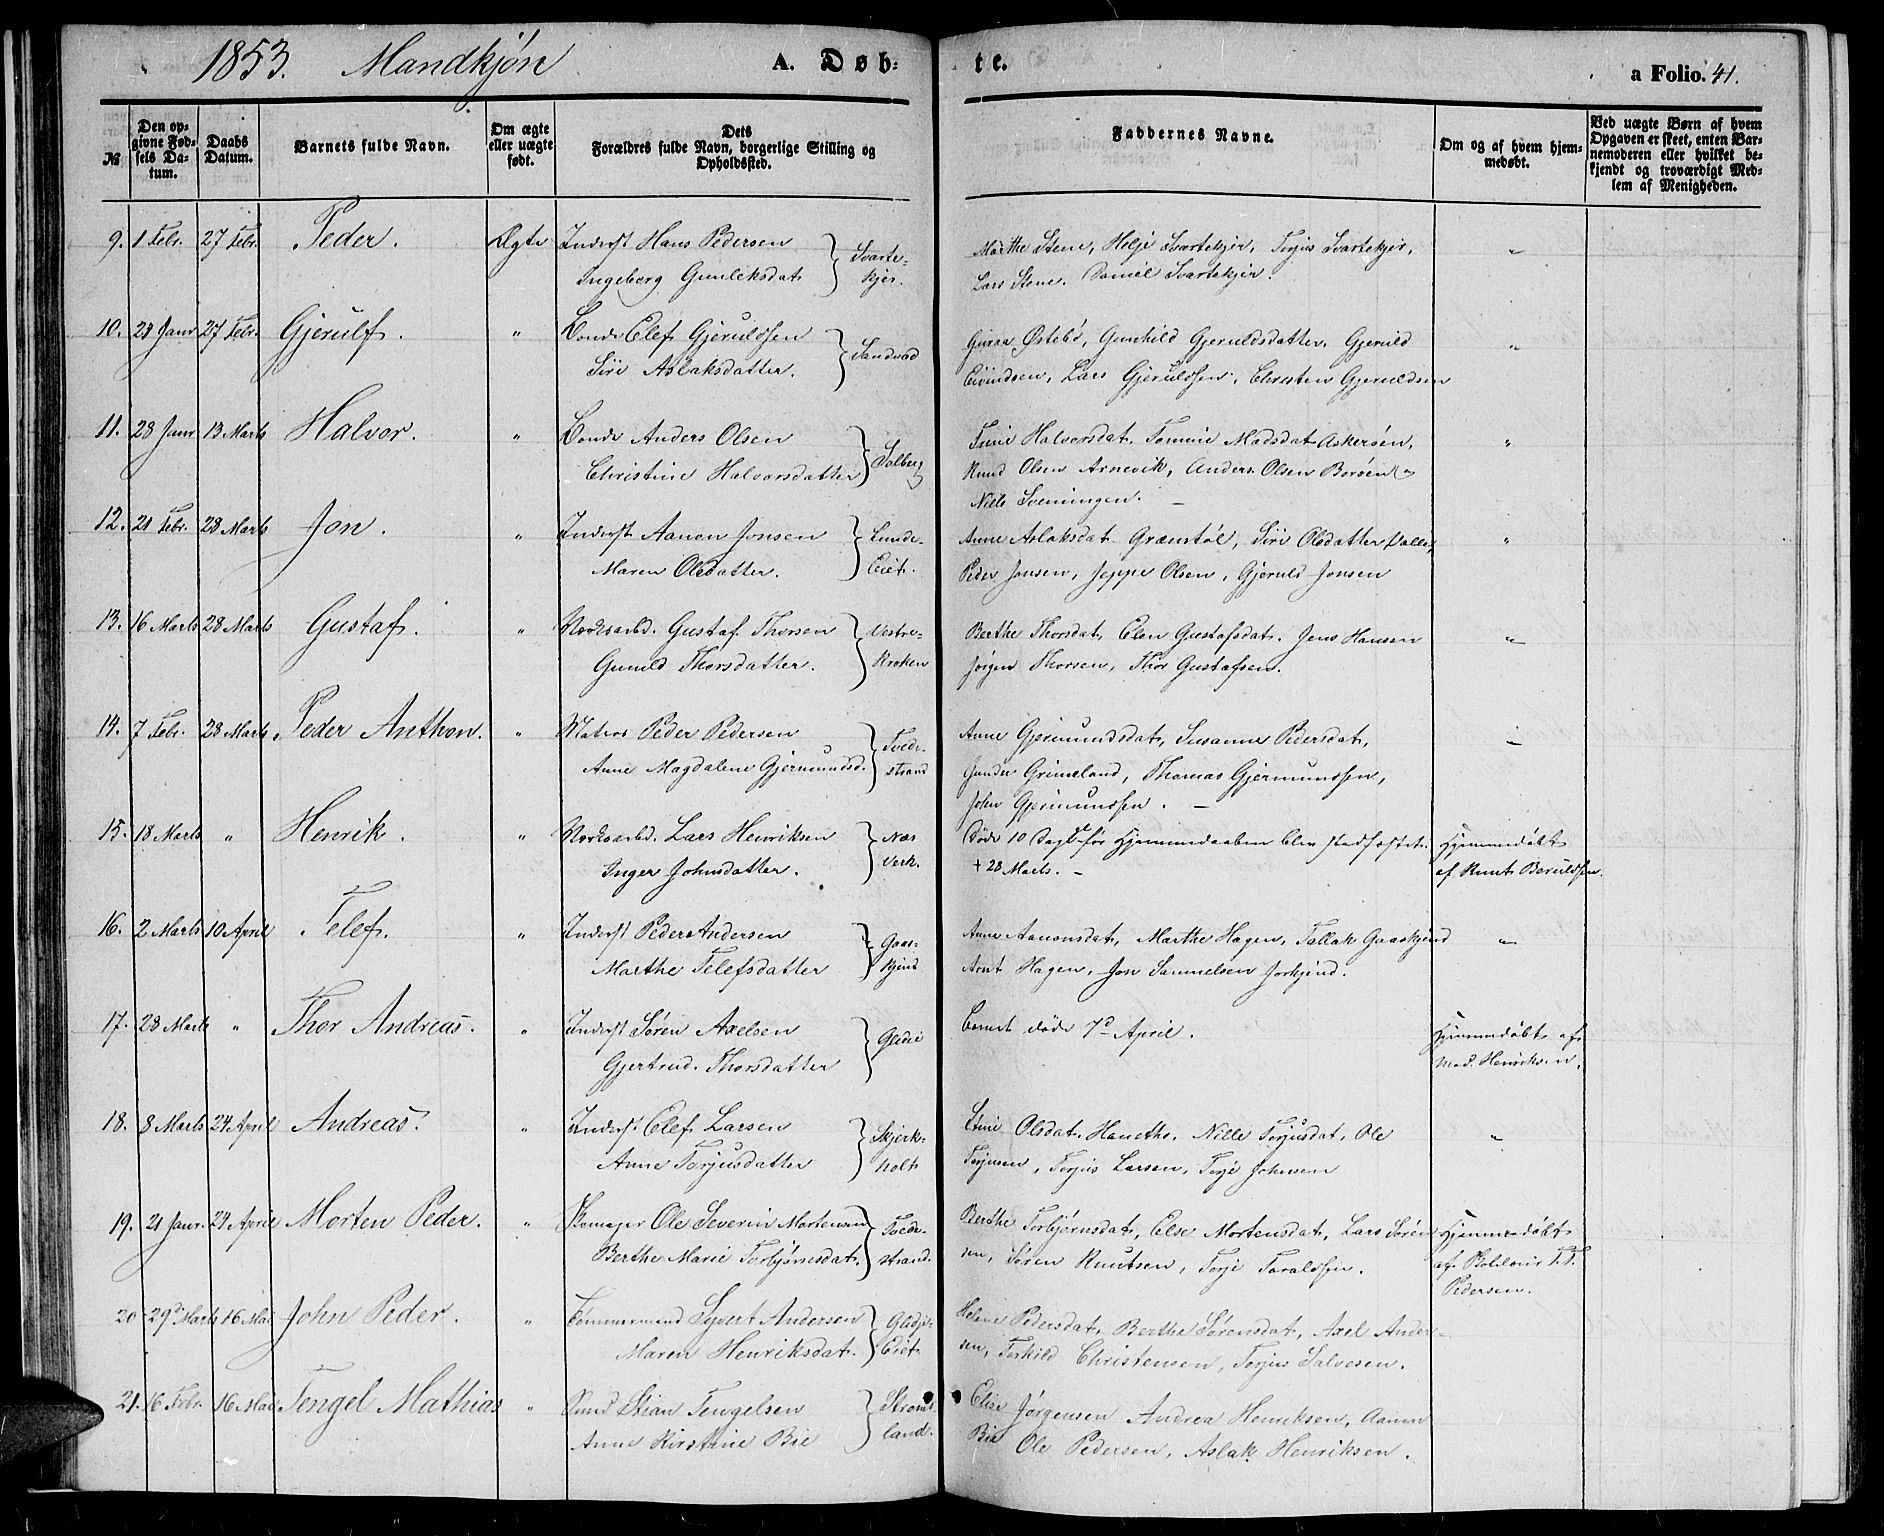 1853. Mandkjøn A. Døb- te. a Folio. 41.
№ Den opgivne Fødsels Datum. Daabs Datum. Barnets fulde Navn. Om ægte eller uægte født. Dets Forældres fulde Navn, borgerlige Stilling og Opholdssted. Faddernes Navne. Om og af hvem hjemmedøbt. Ved uægte Børn af hvem Opgaven er skeet, enten Barnemoderen eller hvilket bekjendt og troværdigt Medlem af Menigheden.
9. 1 Febr. 27 Febr. Peder. Ægte Inderst Hans Pedersen Svarte- Marthe Stene, Helje Svartekjer, Torjus Svartekjer, "
Ingeborg Gunleksdat kjer. Lars Stene. Daniel Svartekjer.
10. 29 Janr 27 Febr. Gjerulf. " Bonde Elef Gjeruldsen Sandvad Guroe Østebø, Gunhild Gjeruldsdatter, Gjeruld "
Siri Aslaksdatter. Eivindsen, Lars Gjeruldsen, Christen Gjeruldsen
11. 28 Janr 13 Marts Halvor. " Bonde Anders Olsen Solberg Trine Halvorsdat. Tomine Madsdat Askerøen, "
Christine Halvorsdatter Knud Olsen Arnevik, Anders Olsen Borøen
Niels Sveningen.
12. 21 Febr. 28 Marts Jon. " Inderst Aanon Jonsen Lunde- Anne Aslaksdat Grænstøl, Siri Olsdatter Valle, "
Maren Olsdatter. Eiet. Peder Jonsen, Jeppe Olsen, Gjeruld Jonsen
13. 16 Marts 28 Marts Gustaf. " Værksarbd. Gustaf Thorsen Vestre- Berthe Thorsdat, Elen Gustafsdat. Jens Hansen "
Gunild Thorsdatter. Kroken Jørgen Thorsen, Thor Gustafsen.
14. 7 Febr. 28 Marts. Peder Anthon. " Matros Peder Pedersen Tvede- Anne Gjermundsdat, Susanne Pedersdat, "
Anne Magdalene Gjermundsd. strand Gunder Grimeland, Thomas Gjermundsen,
John Gjermundsen.
15. 18 Marts " Henrik. " Værksarbd. Lars Henriksen Næs Døde 10 Dage før Hjemmedaaben blev stadfæstet. Hjemmedøbt
Inger Johnsdatter. Verk. + 28 Marts. af Knut Beruldsen.
16. 2 Marts 10 April Telef. " Inderst Peder Andersen Gaas- Anne Aanonsdat, Marthe Hagen, Tallak Gaaskjind "
Marthe Telefsdatter kjind Arnt Hagen, Jon Samuelsen Jorkjend.
17. 28 Marts " Thor Andreas. " Inderst Søren Axelsen Glidie Barnet døde 7d April. Hjemmedøbt af
Gjertrud Thorsdatter Mad. Henriksen.
18. 8 Marts 24 April Andreas. " Inderst Elef Larsen Skjerk- Stine Olsdat. Haneths. Nille Torjusdat, Ole "
Anne Torjusdatter holt Torjusen, Torjus Larsen, Terje Johnsen
19. 21 Janr. 24 April Morten Peder. " Skomager Ole Severin Mortensen Tvede- Berthe Torbjørnsdat, Else Mortensdat, Lars Søren- Hjemmedøbt
Berthe Marie Torbjørnsdat. strand. sen, Søren Knutsen, Terje Taraldsen. af T. T.
Pedersen.
20 29d Marts 16 Mai John Peder. " Tømmermand Syvert Andersen Glidji- Helene Pedersdat, Berthe Sørensdat, Axel Ander-
Maren Henriksdat. Eiet. sen, Torkild Christensen, Torjus Salvesen.
21. 16 Febr. 16 Mai Tengel Mathias " Stian Tengelsen Strøms- Elise Jørgensen Andrea Henriksen, Aanon
Anne Kirstine Bie land. Bie Ole Pedersen, Aslak Henriksen.